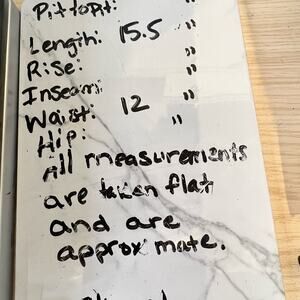 Pit to Pit: "
Length: 15.5 "
Rise: "
Inseam: "
Waist: 12 "
Hip: "
All measurements
are taken flat
and are
approx mate.